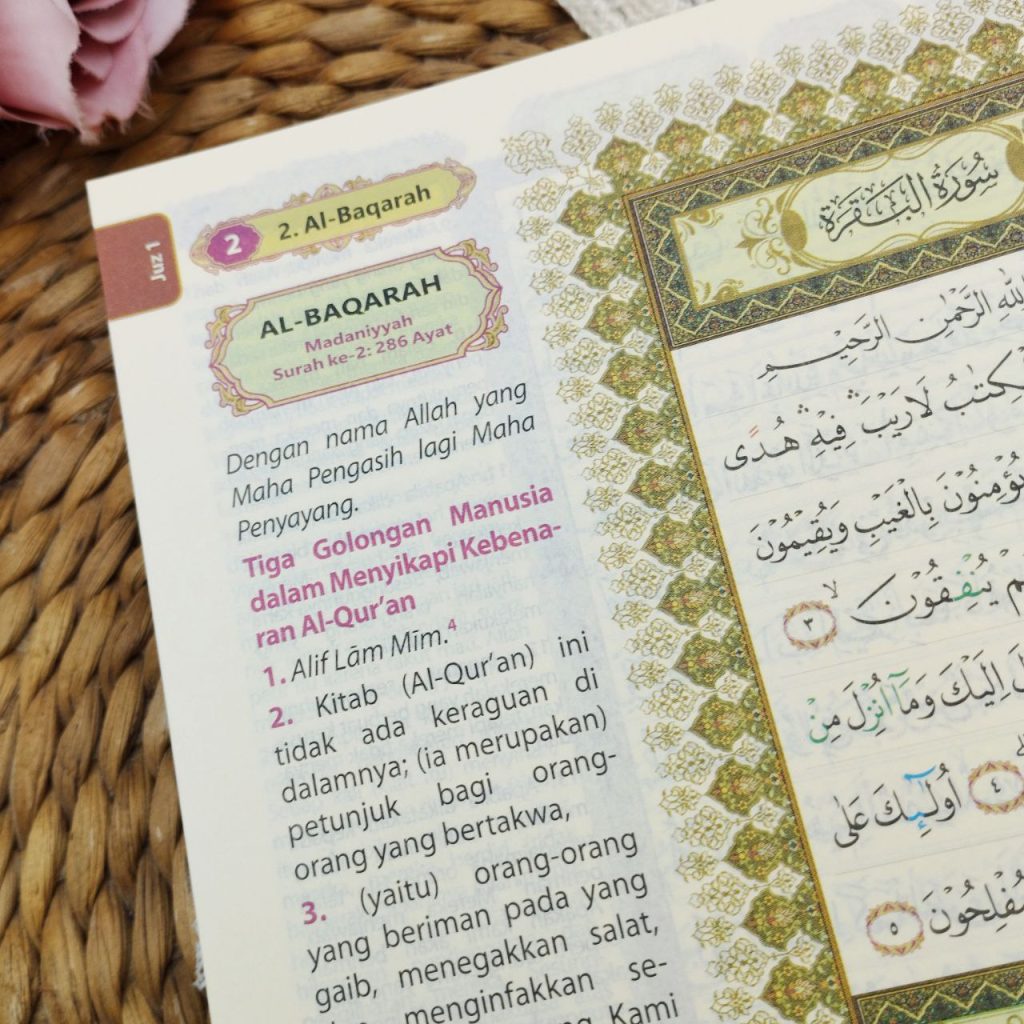 Juz 1
2
2. Al-Baqarah
AL-BAQARAH
Madaniyyah
Surah ke-2: 286 Ayat
Dengan nama Allah yang
Maha Pengasih lagi Maha
Penyayang.
Tiga Golongan Manusia
dalam Menyikapi Kebena-
ran Al-Qur'an
1. Alif Lām Mīm.⁴
2. Kitab (Al-Qur'an) ini
tidak ada keraguan di
dalamnya; (ia merupakan)
petunjuk bagi orang-
orang yang bertakwa,
3. (yaitu) orang-orang
yang beriman pada yang
gaib, menegakkan salat,
menginfakkan se-
Kami
سُورَةُ الْبَقَرَةِ
اللهِ الرَّحْمٰنِ الرَّحِيْمِ
لَا رَيْبَ ۛ فِيْهِ ۛ هُدًى
بِالْغَيْبِ وَيُقِيْمُوْنَ
يُنْفِقُوْنَ ۙ ٣
اِلَيْكَ وَمَآ اُنْزِلَ مِنْ
٤ اُولٰۤىِٕكَ عَلٰى
٥